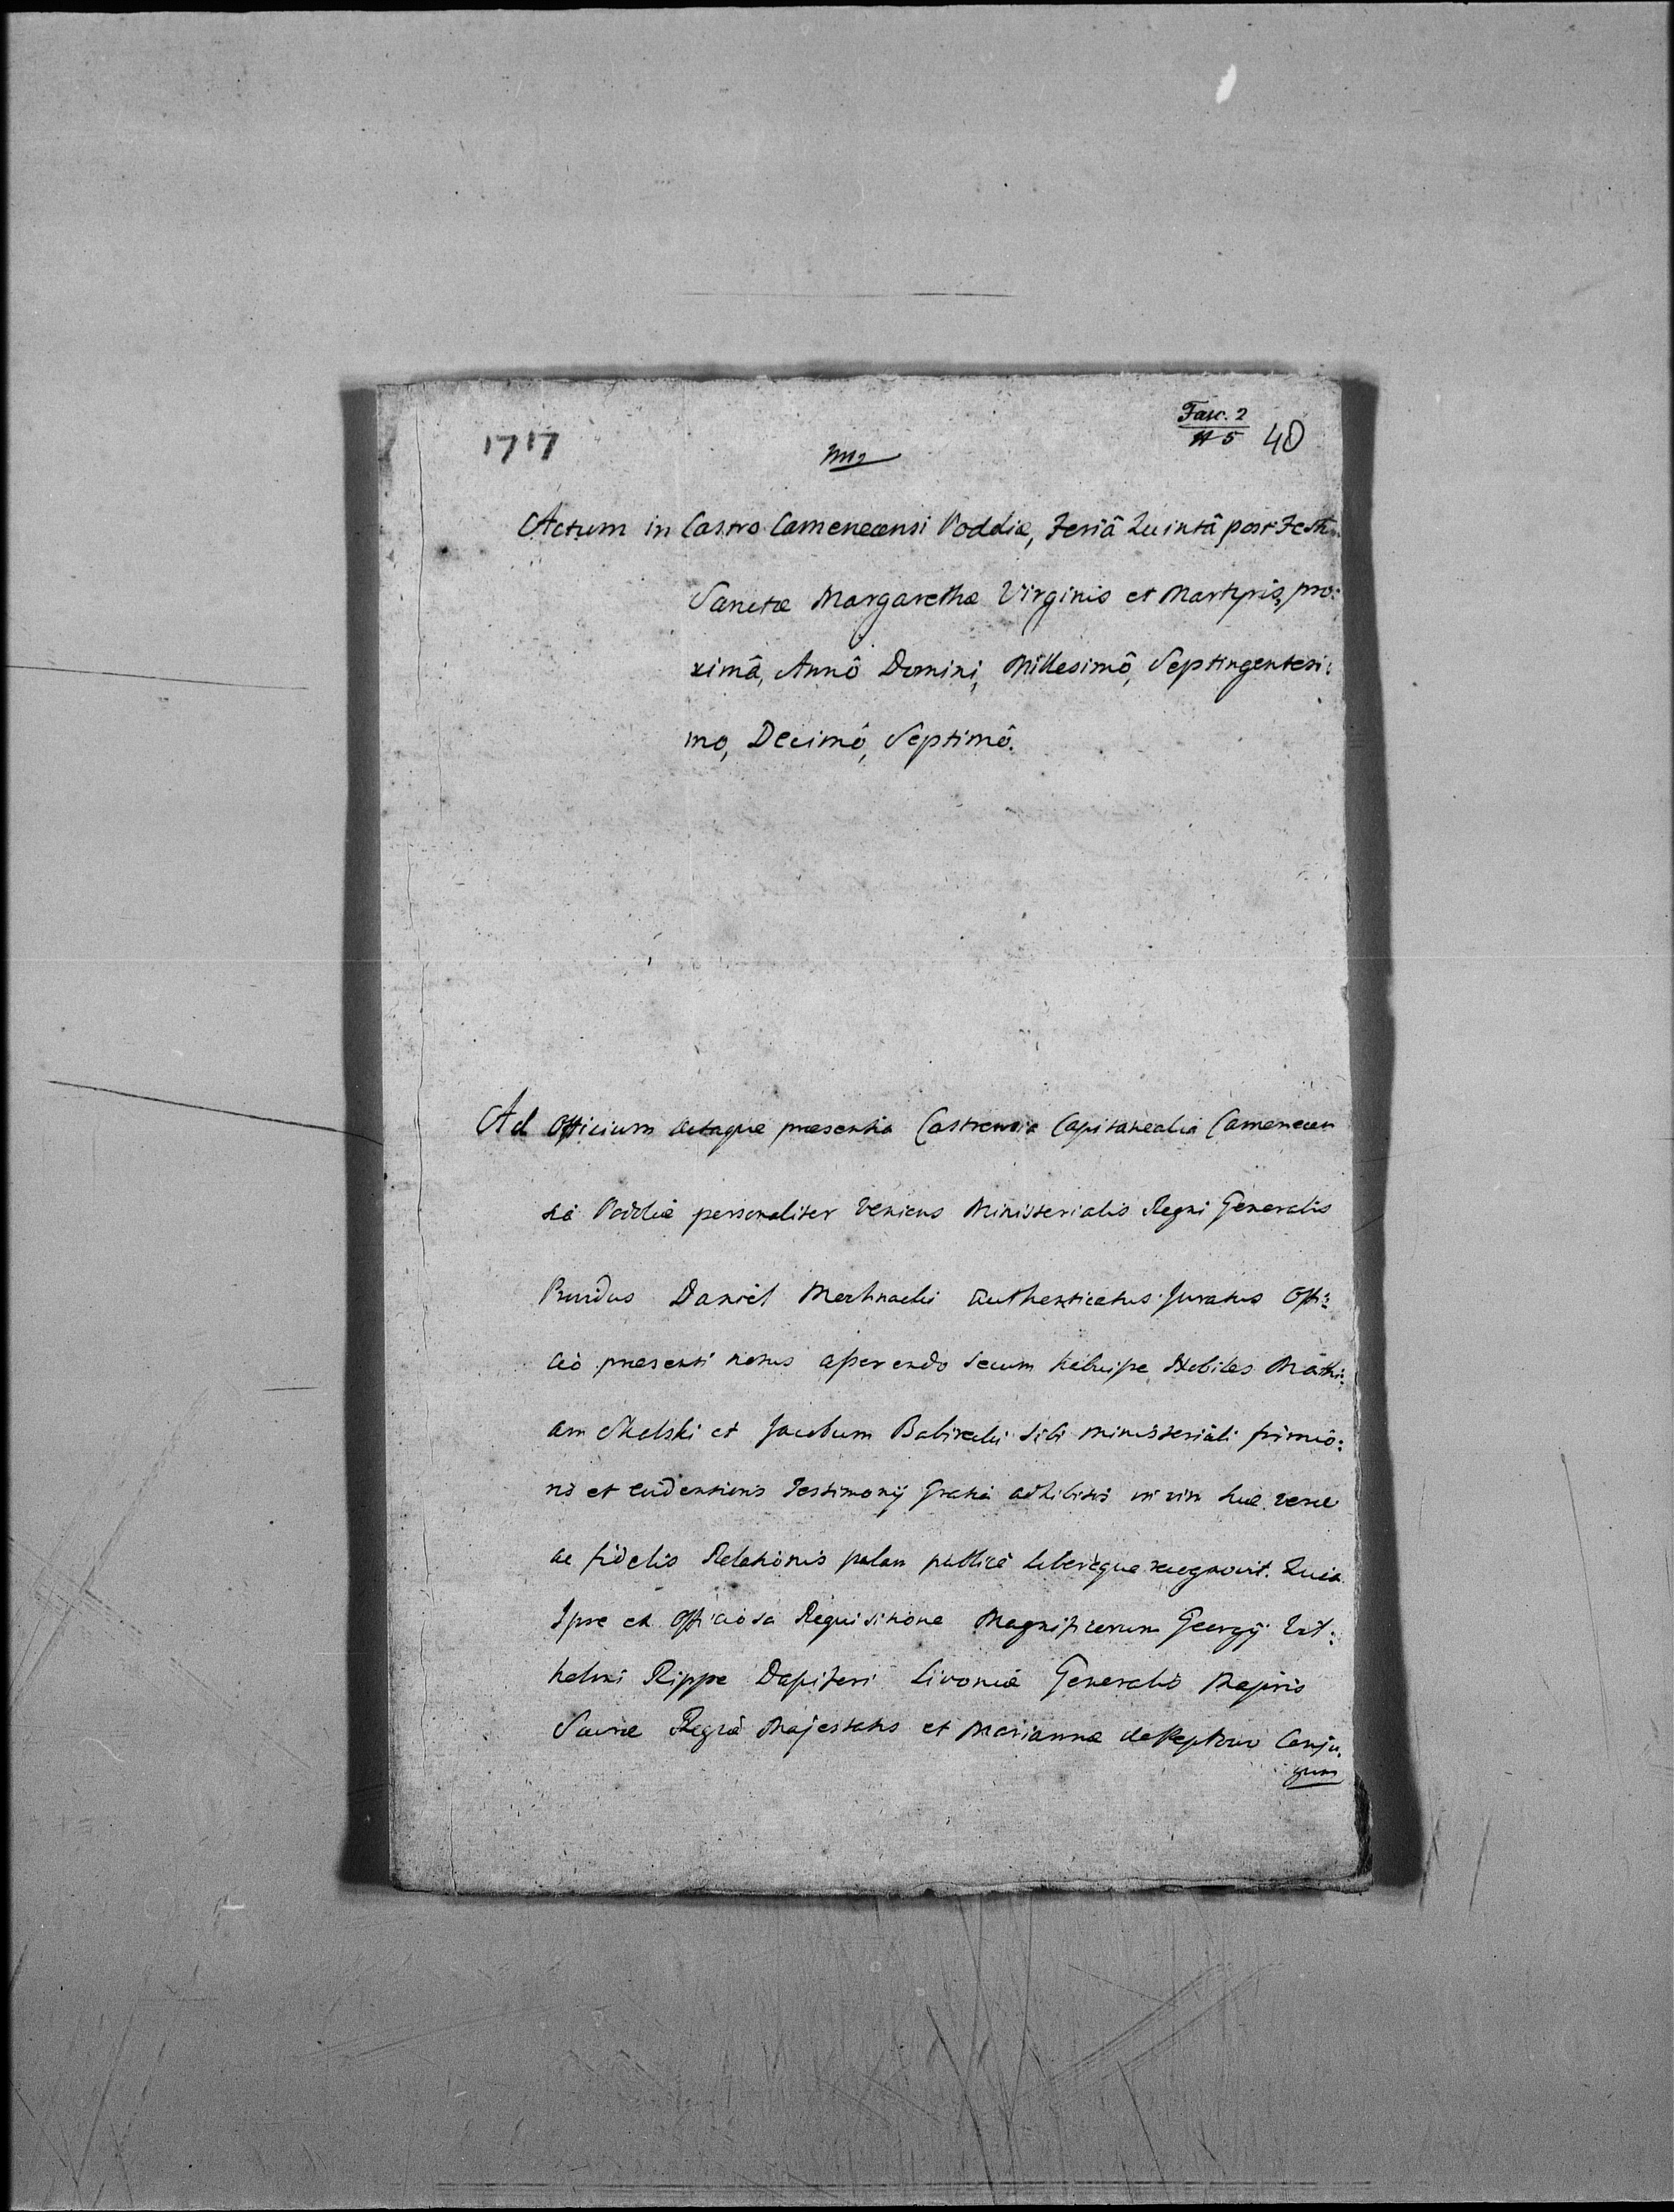 1717
Fasc. 2
N 5
40
Actum in Castro Camenecensi Podoliæ, Feriâ Quintâ post Festu
Sanctæ Margarethæ Virginis et Martyris, pro:
ximâ, Annô Domini, Millesimô, Septingentesi:
mo, Decimô, Septimô.
Ad Officium Actaque præsentia Castrensia Capitanealia Camenecen
Podoliæ personaliter veniens Ministerialis Regni Generalis
Providus Daniel authenticatus Juratus Offi:
ciô præsenti notus asserendo secum habuisse Nobiles Mathi:
am Skelski et Jacobum sibi ministeriali firmio:
ris et evidentioris Testimonij gratiâ adhibitos in vim suæ veræ
ac fidelis Relationis palam publicè liberèque recognovit. Quia
Ipse ex Officiosa Requisitione Magnificorum Georgij Vil:
helmi Rippe Dapiferi Livoniæ Generalis Majoris
Sacræ Regiæ Majestatis et Mariannæ de Conju.
gum